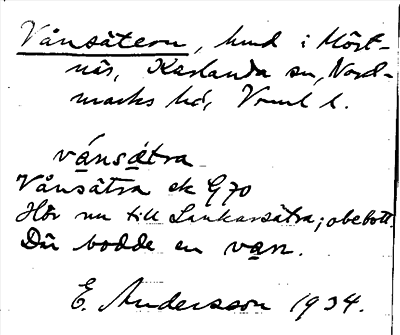 Vånsätern, hmd i Höst-
näs, Karlanda sn, Nord-
marks hd, Vrml l.
vánsá̱tra
Vånsätra ek G70
Hör nu till Lankarsätra; obebott.
Där bodde en va̱n.
E. Andersson 1934.